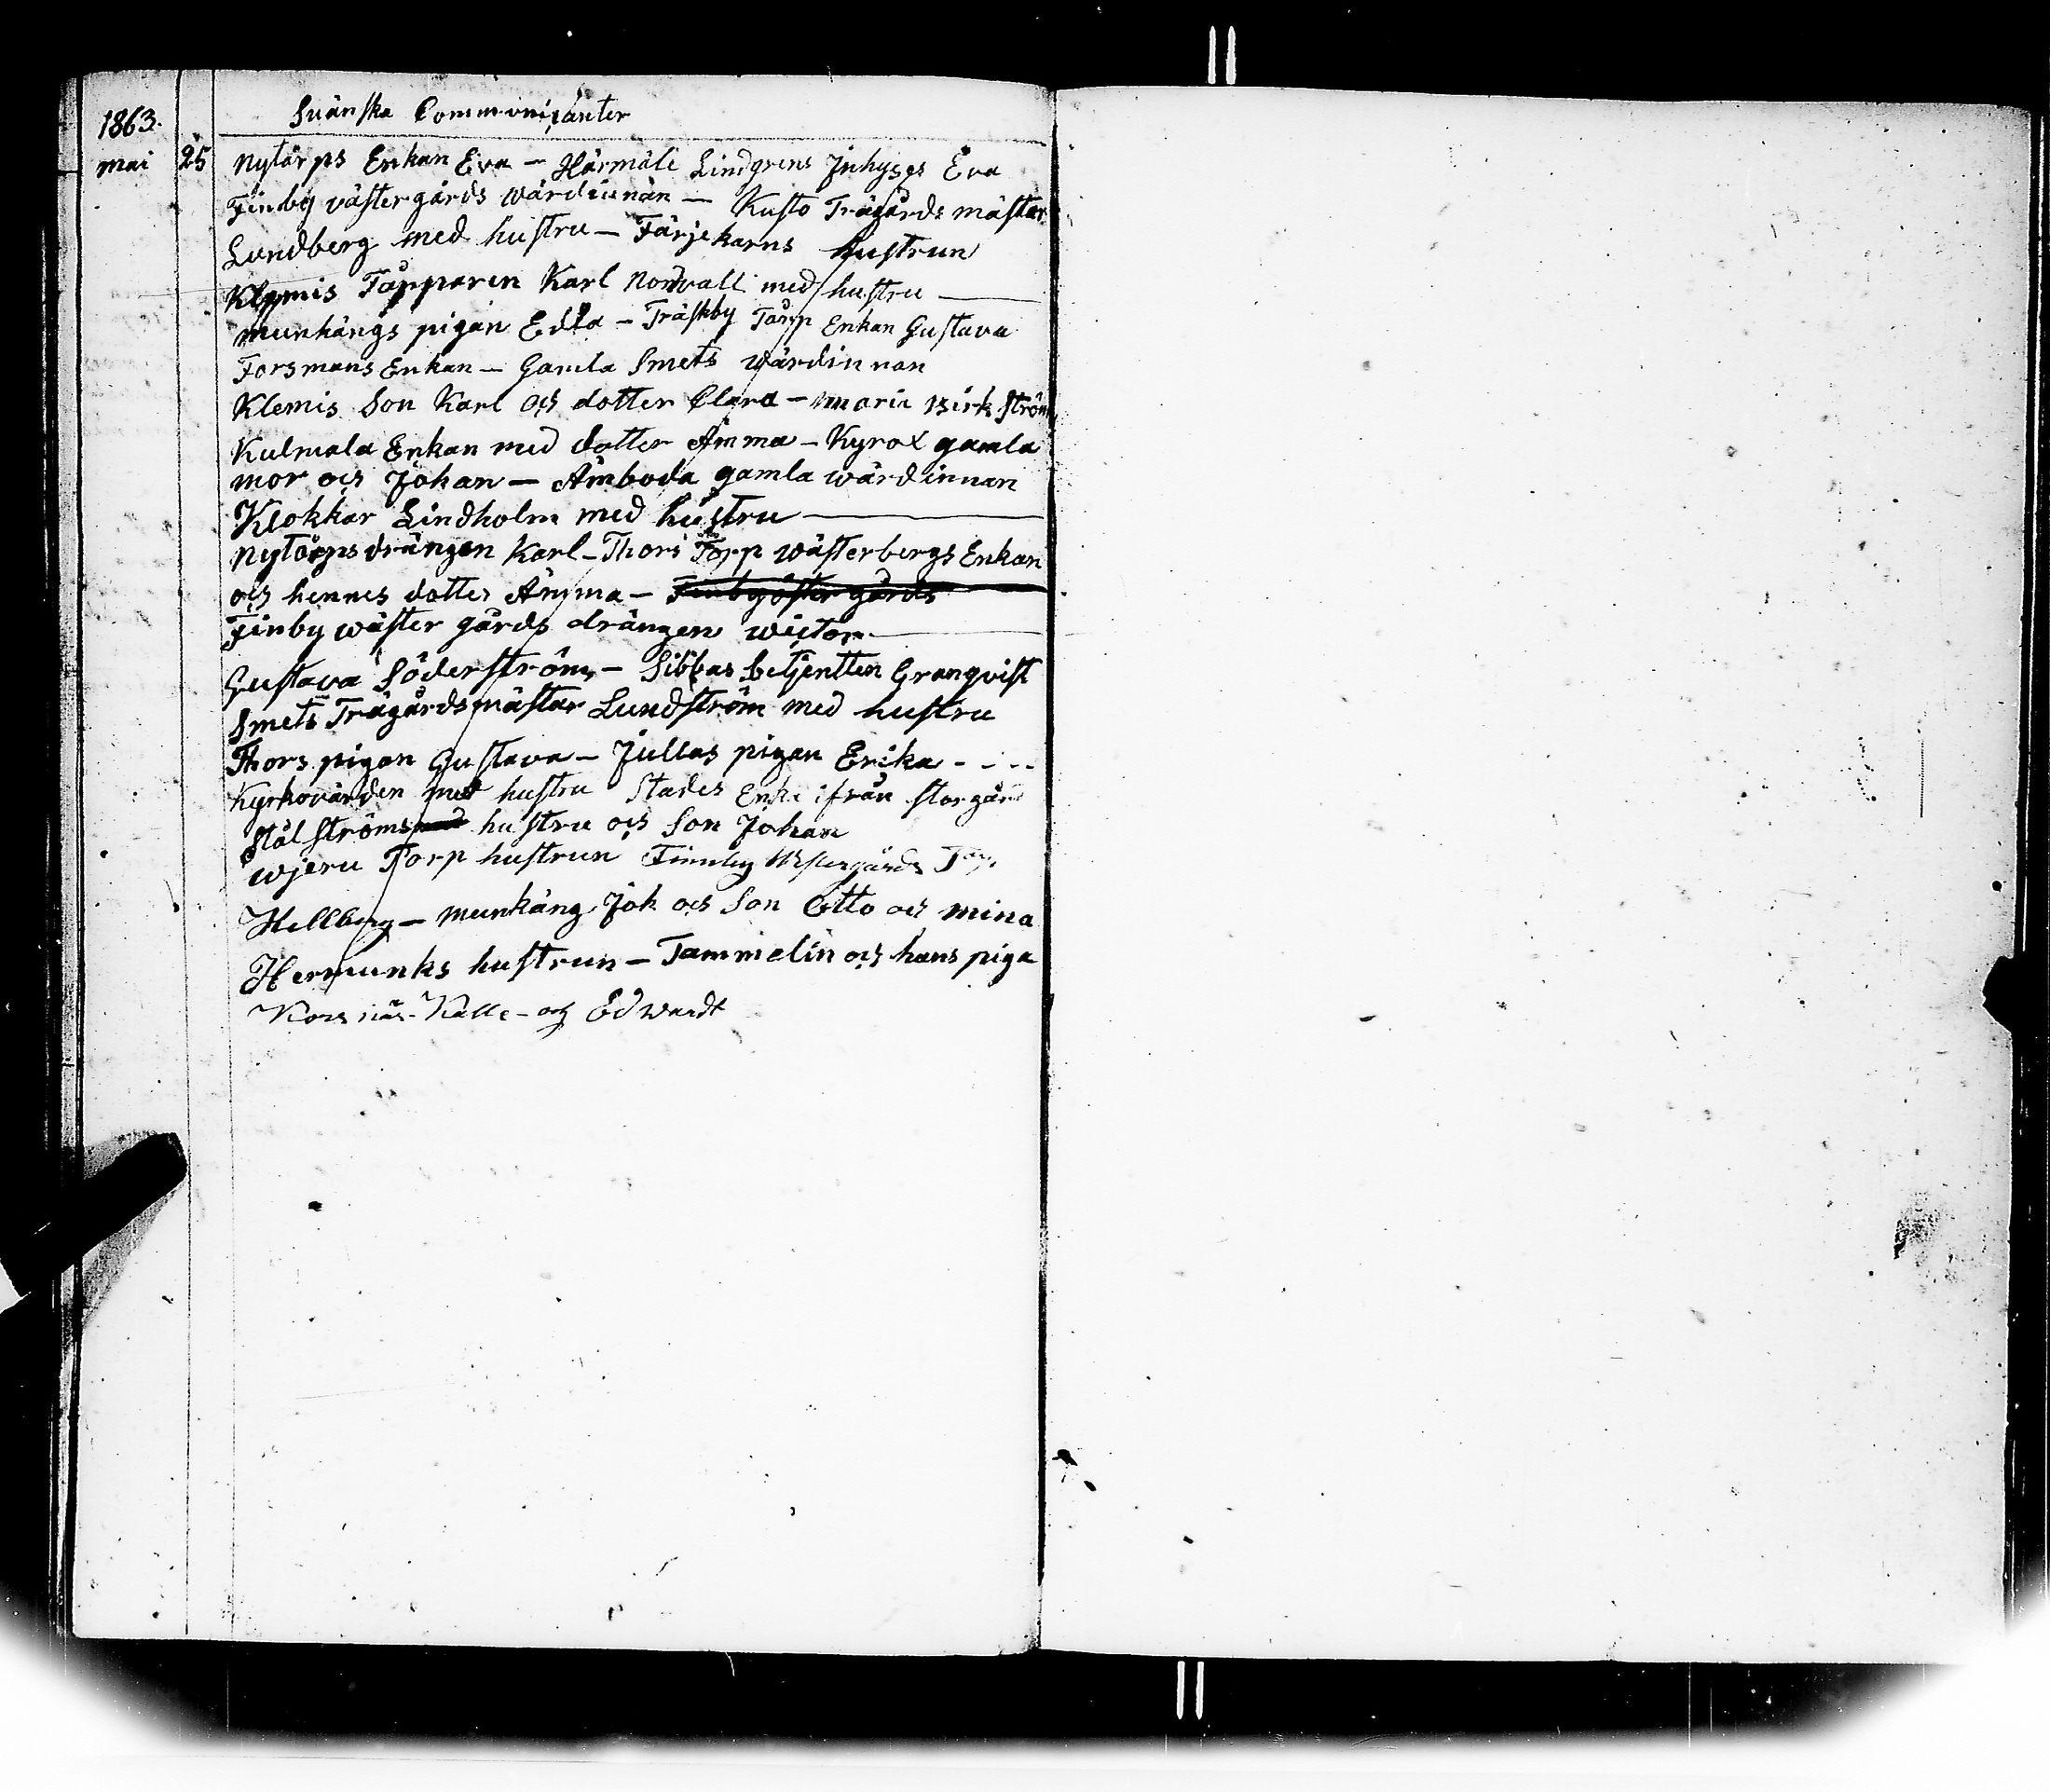 1863. Suänska Communicanter
mai 25 nytårps Enkan Eva - Härmälä Lindgrens Jnhyses Eva
Finby västergårds wärdinnan - Kusto Trägårds mästar
Lundberg med hustru - Färjekarns hustrun
Klemis Tårpparen Karl Nordvall med hustru -
munkängs pigan Edla - Träskby Tårp Enkan Gustava
Forsmans Enkan - Gamla Smets wärdinnan
Klemis Son Karl och dotter Clara - maria Birkström
Kulmala Enkan med dotter Amma - Kyrox gamla
mor och Johan - Åmboda gamla wärdinnan
Klokkar Lindholm med hustru
Nytörps drängen Karl - Thors Torp wästerbergs Enkan
och hennes dotter Amma - Finby östergårds
Finby wäster gårds drängen wictor
Gustava Söderström - Sibbas betjentten Granqvist
Smets Trägårdsmästar Lundström med hustru
Thors pigan Gustava - Jullas pigan Erika - - - -
Kyrkovärden med hustru Stades Enke ifrån storgård
Stålströms med hustru och Son Johan
wjeru Torp hustrun Finnby Westergårds
Hellberg - munkäng Joh och Son Otto och mina
Hermunks hustrun - Tammelin och hans piga
Korsnäs - Kalle - och Edwardt